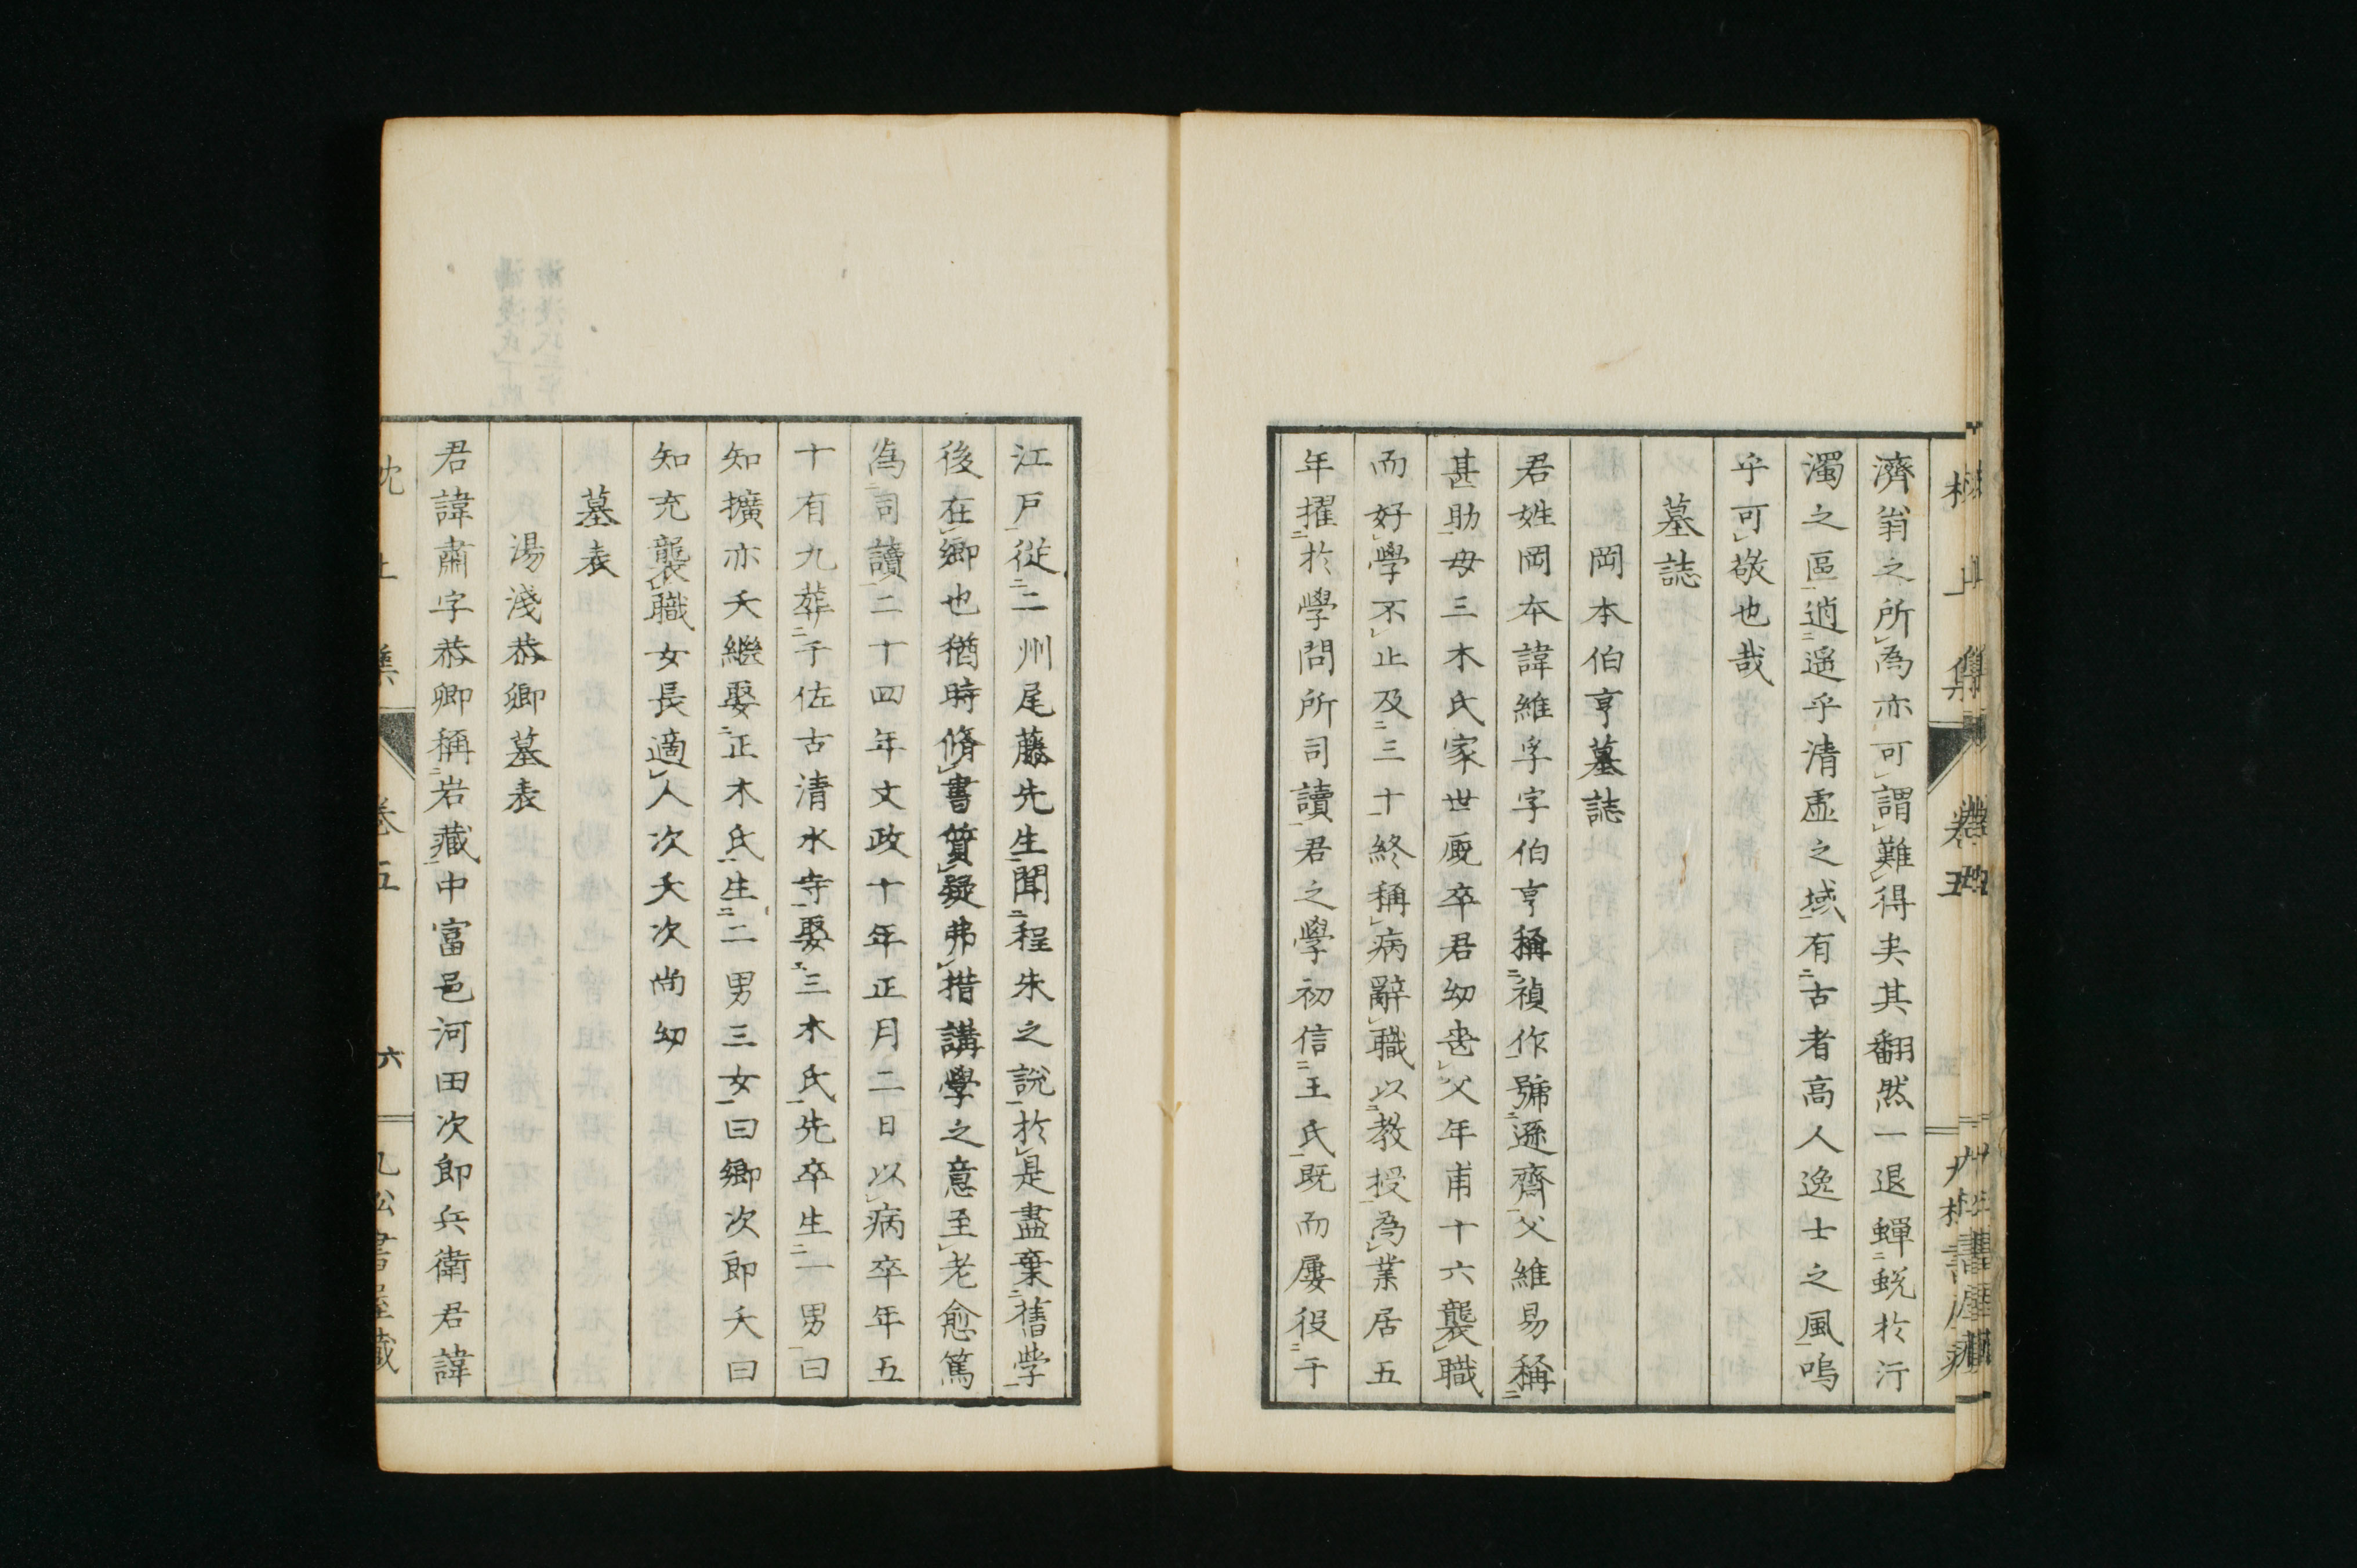 濟翁之所爲亦可謂難得矣其翻然一退蟬蛻於汙
濁之區逍遥乎清虛之域有古者高人逸士之風嗚
乎可敬也哉
墓誌
岡本伯亨墓誌
君姓岡本諱維孚字伯亨稱禎作號遜齋父維易稱
甚助母三木氏家世厩卒君幼喪父年甫十六襲職
而好學不止及三十終稱病辭職以教授爲業居五
年擢於學問所司讀君之學初信王氏既而屢役于
江戸從二州尾藤先生聞程朱之說於是盡棄舊學
後在鄉也猶時脩書質疑弗措講學之意至老愈篤
爲司讀二十四年文政十年正月二日以病卒年五
十有九葬于佐古清水寺娶三木氏先卒生一男曰
知擴亦夭繼娶正木氏生二男三女曰鄉次郎夭曰
知充襲職女長適人次夭次尚幼
墓表
湯淺恭卿墓表
君諱肅字恭卿稱岩藏中富邑河田次郎兵衛君諱
上集
卷五
六
書屋藏